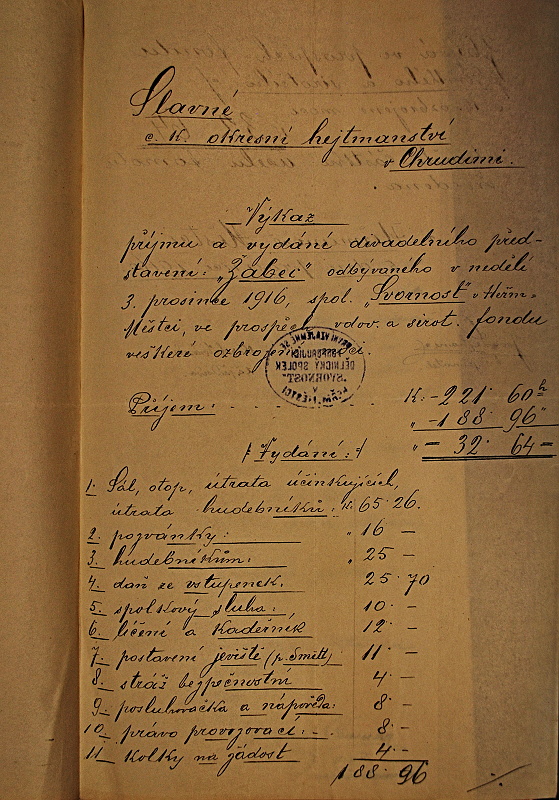 Slavné
c. k. okresní hejtmanství
v Chrudimi.
Výkaz
příjmu a vydání divadelního před-
stavení: „Žabec" odbývaného v neděli
3. prosince 1916, spol. „Svornost" v Heřm.
Městci, ve prospěch vdov. a sirot. fondu
veškeré ozbrojené moci.
Příjem: K:- 221· 60 h
„ -188 96"
„ - 32· 64 -
/: Vydání :/
1. Sál, otop, útrata účinkujících,
útrata hudebníků: K 65·26.
2. pozvánky: „ 16 -
3. hudebníkům: „ 25 -
4. daň ze vstupenek. 25·70
5. spolkový sluha: 10·-
6. líčení a kadeřník 12·-
7. postavení jeviště (p. Smitt) 11·-
8. stráž bezpečnostní 4·-
9. posluhovačka a nápověda: 8·-
10. právo provozovací: - 8·-
11. Kolky na žádost 4·-
188 96
DĚLNICKÝ SPOLEK
„SVORNOST"
V
HEŘM. MĚSTCI